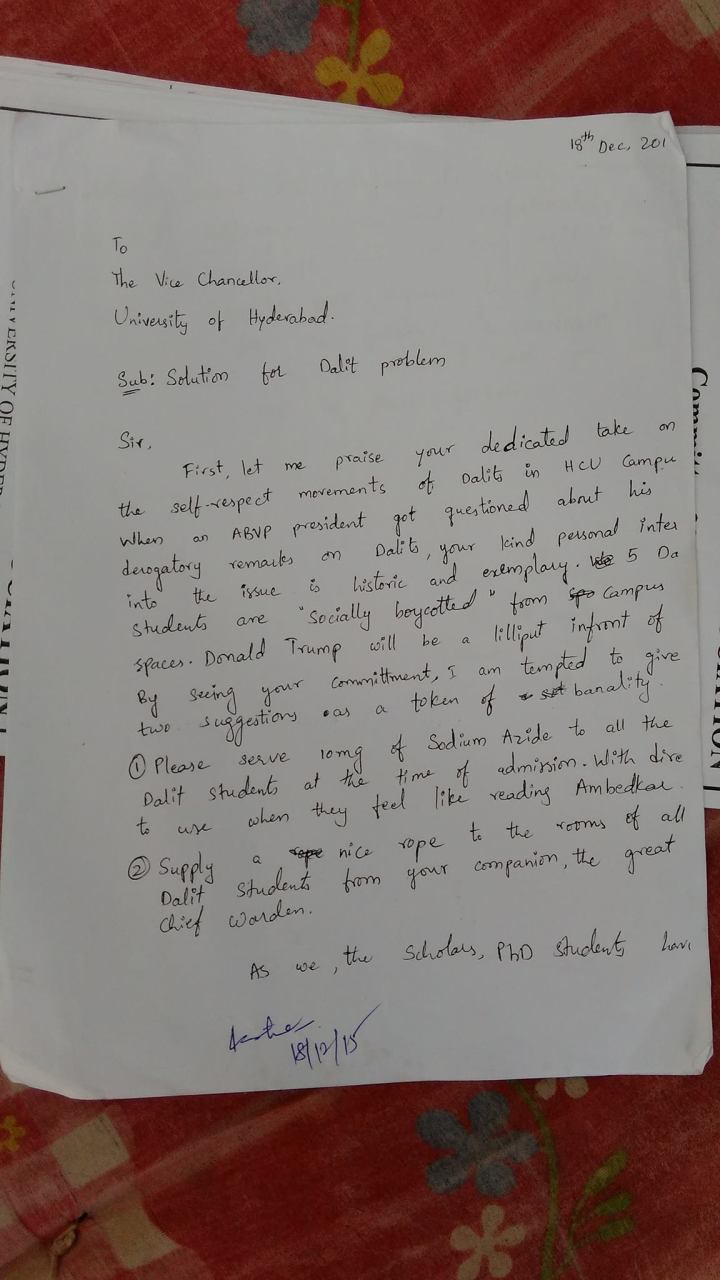 18th Dec, 201
To
The Vice Chancellor,
University of Hyderabad.
Sub: Solution for Dalit problem
Sir,
First, let me praise your dedicated take on
the self-respect movements of Dalits in HCU Campu
When an ABVP president got questioned about his
derogatory remarks on Dalits, your kind personal inter
into the issue is historic and exemplary. 5 Da
students are "Socially boycotted" from Campus
spaces. Donald Trump will be a lilliput infront of
By seeing your committment, I am tempted to give
two suggestions as a token of banality.
① Please serve 10mg of Sodium Azide to all the
Dalit students at the time of admission. With dire
to use when they feel like reading Ambedkar.
② Supply a nice rope to the rooms of all
Dalit students from your companion, the great
Chief Warden.
As we, the Scholars, PhD students hav
18/12/15
UNIVERSITY OF HYDER